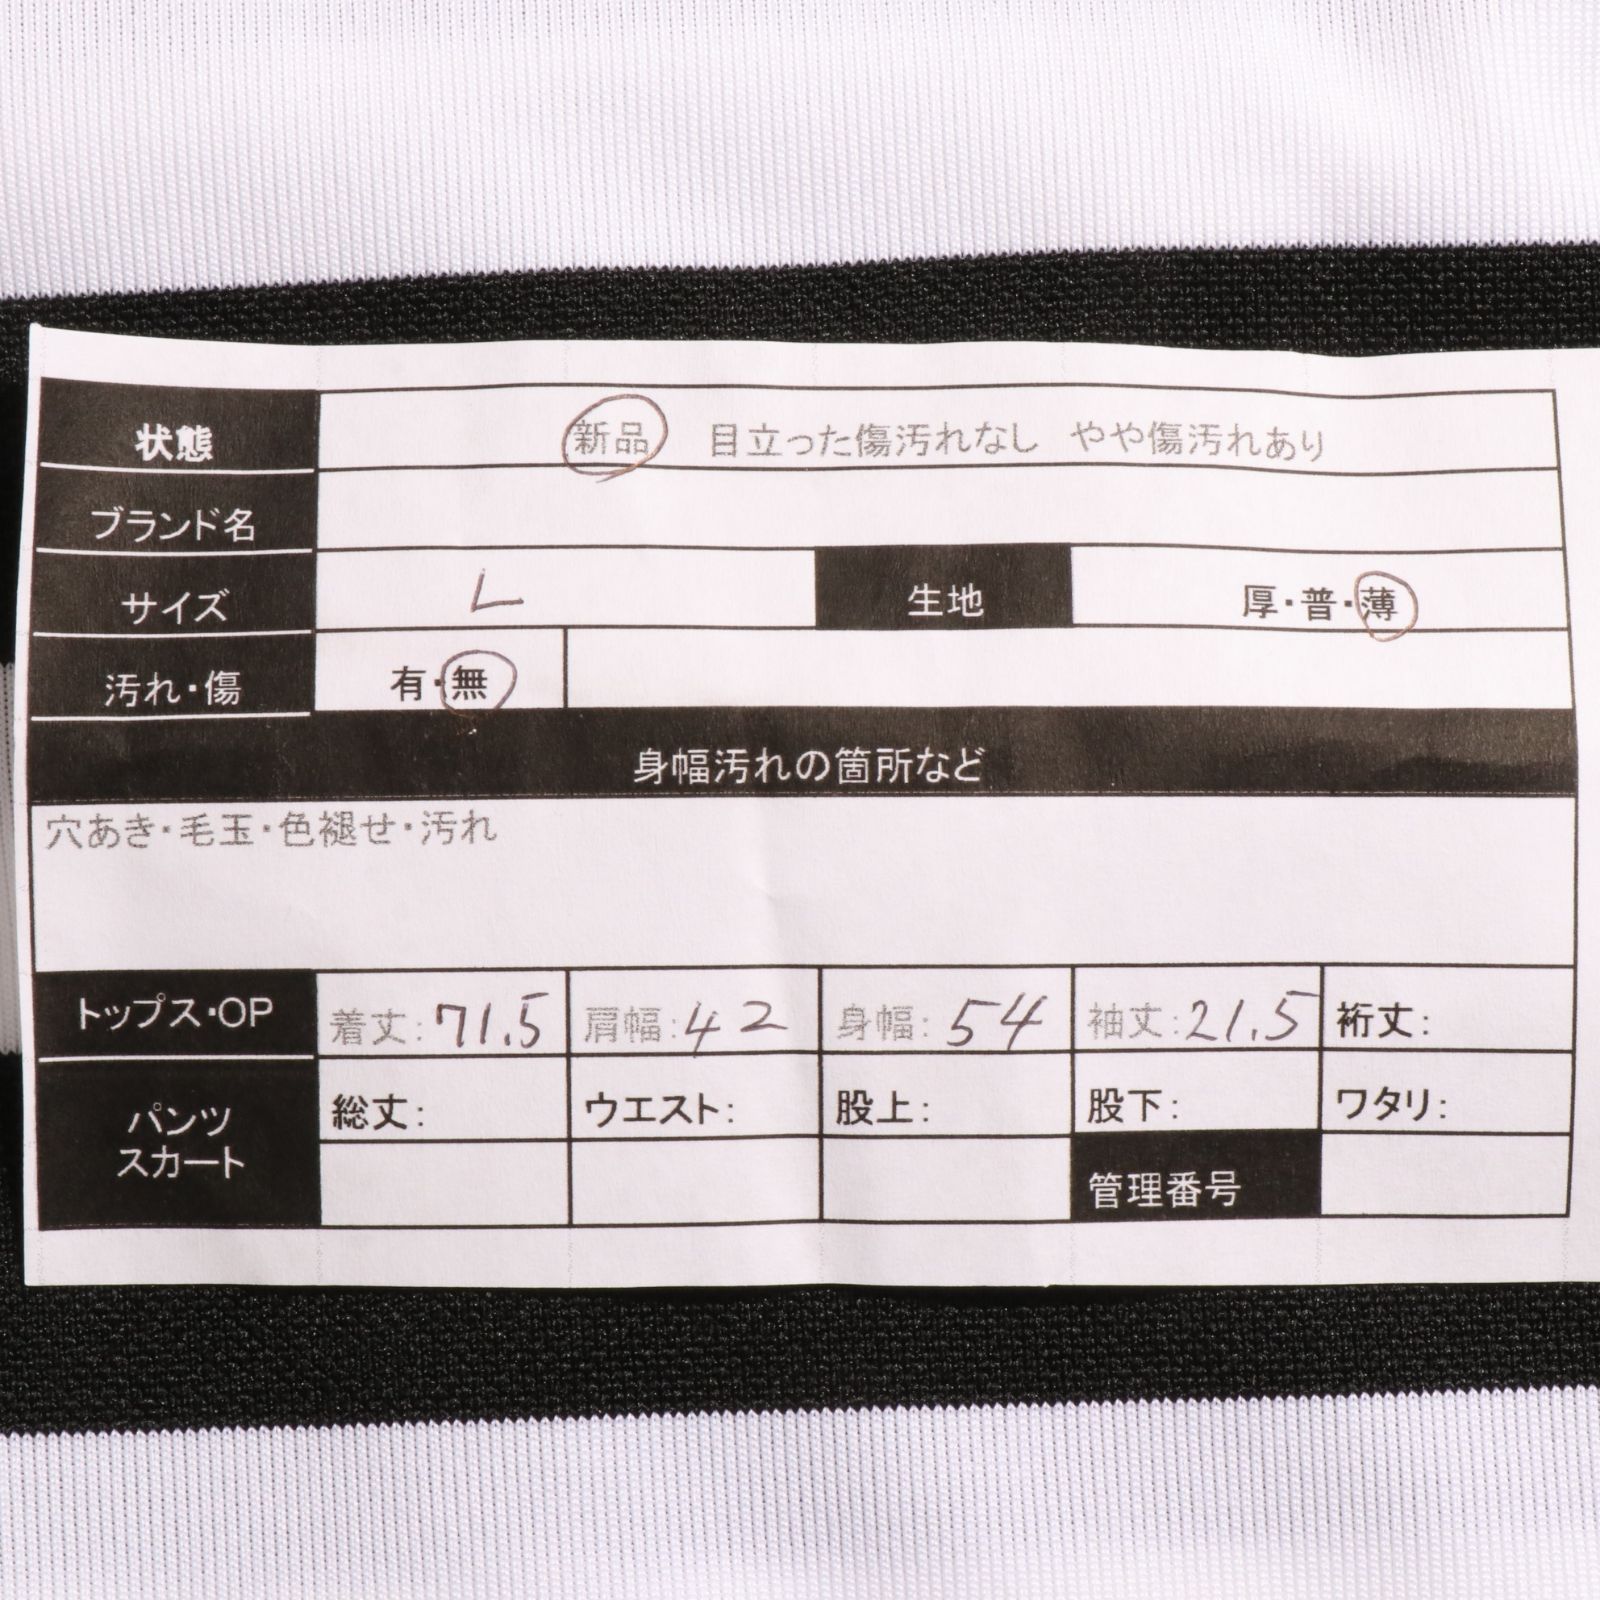 状態 新品 目立った傷汚れなし やや傷汚れあり
ブランド名
サイズ L 生地 厚・普・薄
汚れ・傷 有・無
身幅汚れの箇所など
穴あき・毛玉・色褪せ・汚れ
トップス・OP 着丈:71.5 肩幅:42 身幅:54 袖丈:21.5 裄丈:
パンツ
スカート
総丈: ウエスト: 股上: 股下: ワタリ:
管理番号